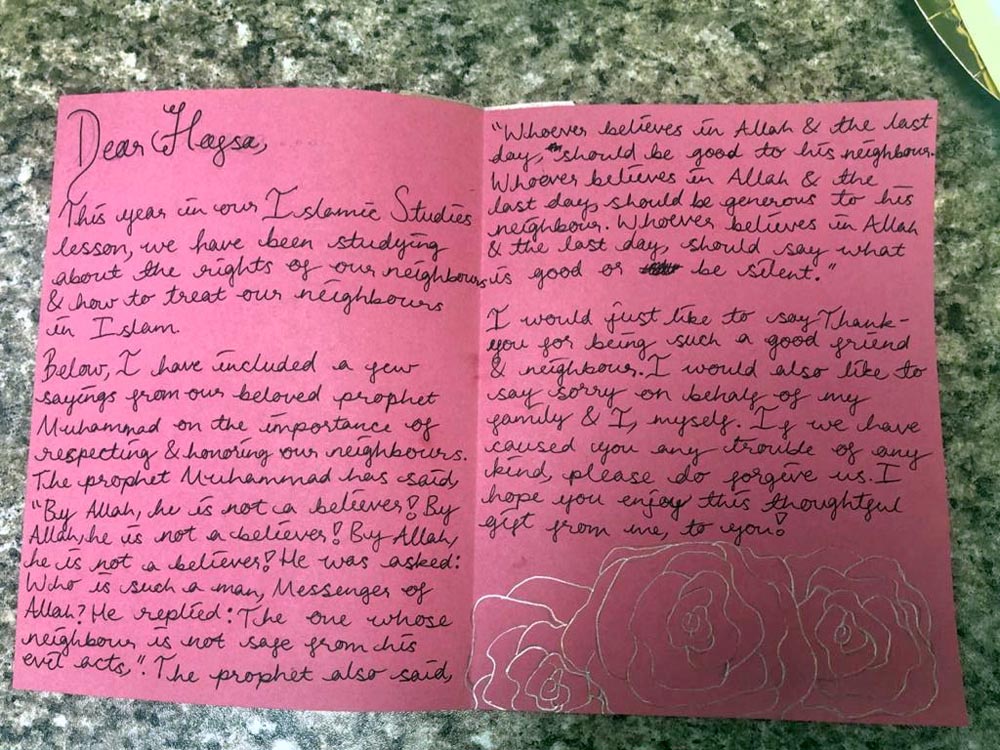 Dear Hagsa,
This year in our Islamic Studies
lesson, we have been studying
about the rights of our neighbours
& how to treat our neighbours
in Islam.
Below, I have included a few
sayings from our beloved prophet
Muhammad on the importance of
respecting & honoring our neighbours.
The prophet Muhammad has said,
"By Allah, he is not a believer! By
Allah, he is not a believer! By Allah,
he is not a believer! He was asked:
Who is such a man, Messenger of
Allah? He replied: The one whose
neighbour is not safe from his
evil acts,". The prophet also said,
"Whoever believes in Allah & the last
day, should be good to his neighbour.
Whoever believes in Allah & the
last day, should be generous to his
neighbour. Whoever believes in Allah
& the last day, should say what
is good or be silent."
I would just like to say Thank-
you for being such a good friend
& neighbour. I would also like to
say sorry on behalf of my
family & I, myself. If we have
caused you any trouble of any
kind, please do forgive us. I
hope you enjoy this thoughtful
gift from me, to you!